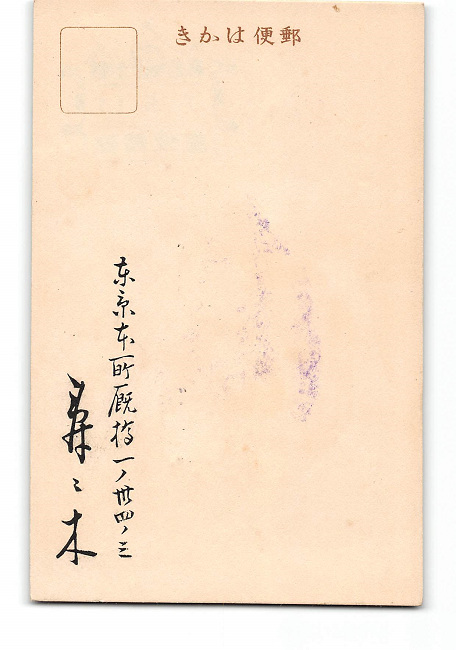 きかは便郵
東京本所厩橋一ノ卅四ノ三
々木